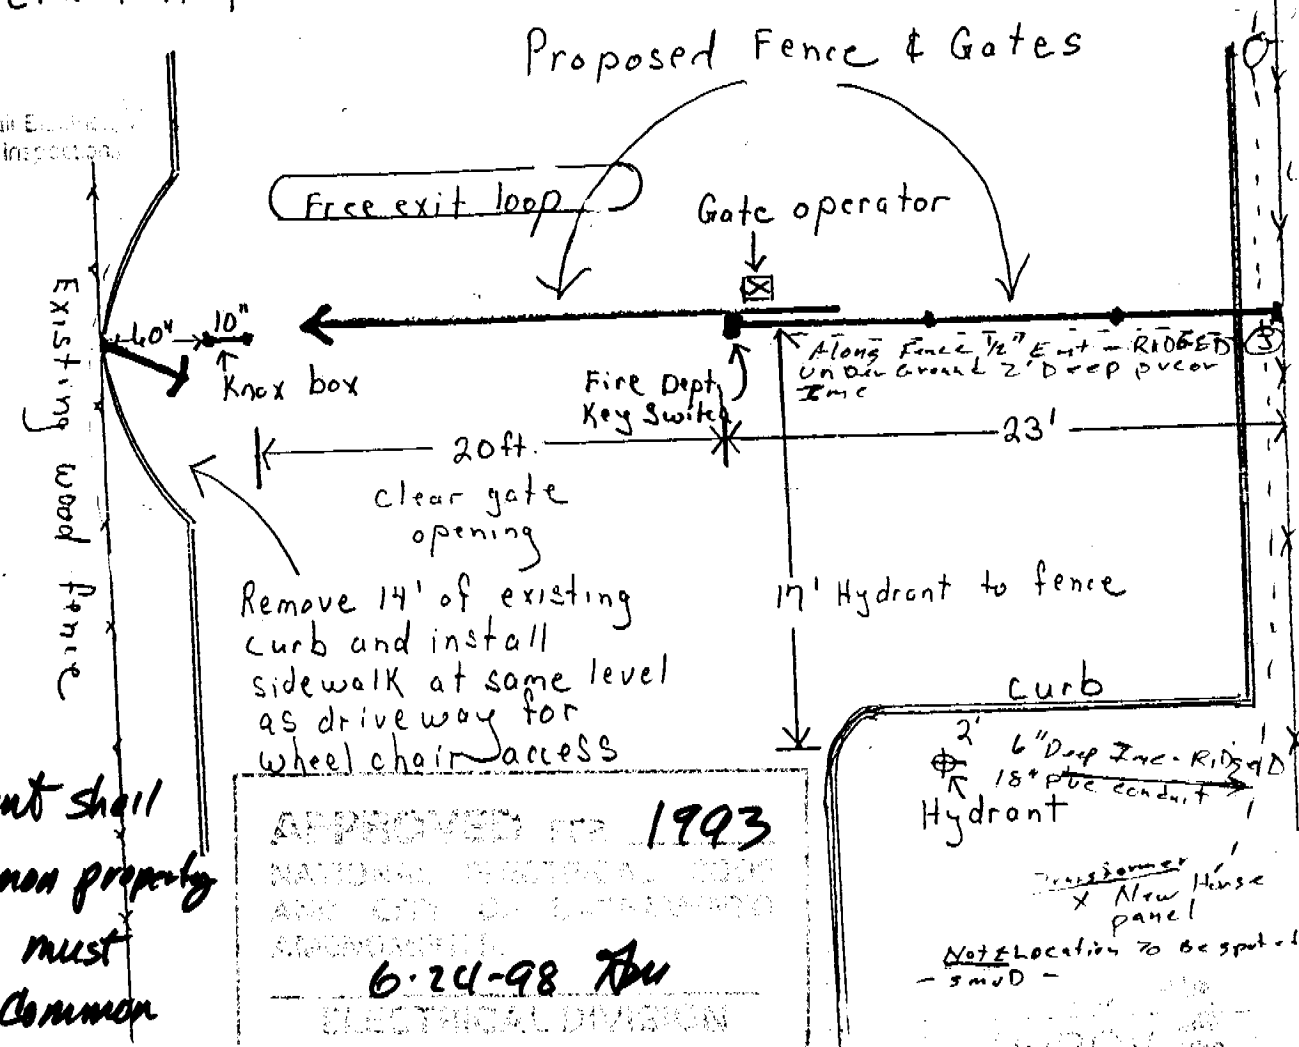 Proposed Fence & Gates
inspection
Free exit loop
Gate operator
Existing wood fence
40"
10"
Knox box
Fire Dept.
Key Switch
Along Fence 1/2" Emt - RIDGED
Under Ground 2' Deep pvc or
Imc
20ft.
23'
clear gate
opening
Remove 14' of existing
curb and install
sidewalk at same level
as driveway for
wheel chair access
17' Hydrant to fence
curb
2'
6" Deep Imc - Ridged
18" pvc conduit
Hydrant
Transformer
x New House
panel
Note Location To Be spotted
- SMUD -
shall
property
must
Common
APPROVED PER 1993
NATIONAL ELECTRICAL CODE
AND CITY OF SACRAMENTO
AMENDMENTS
6-24-98
ELECTRICAL DIVISION